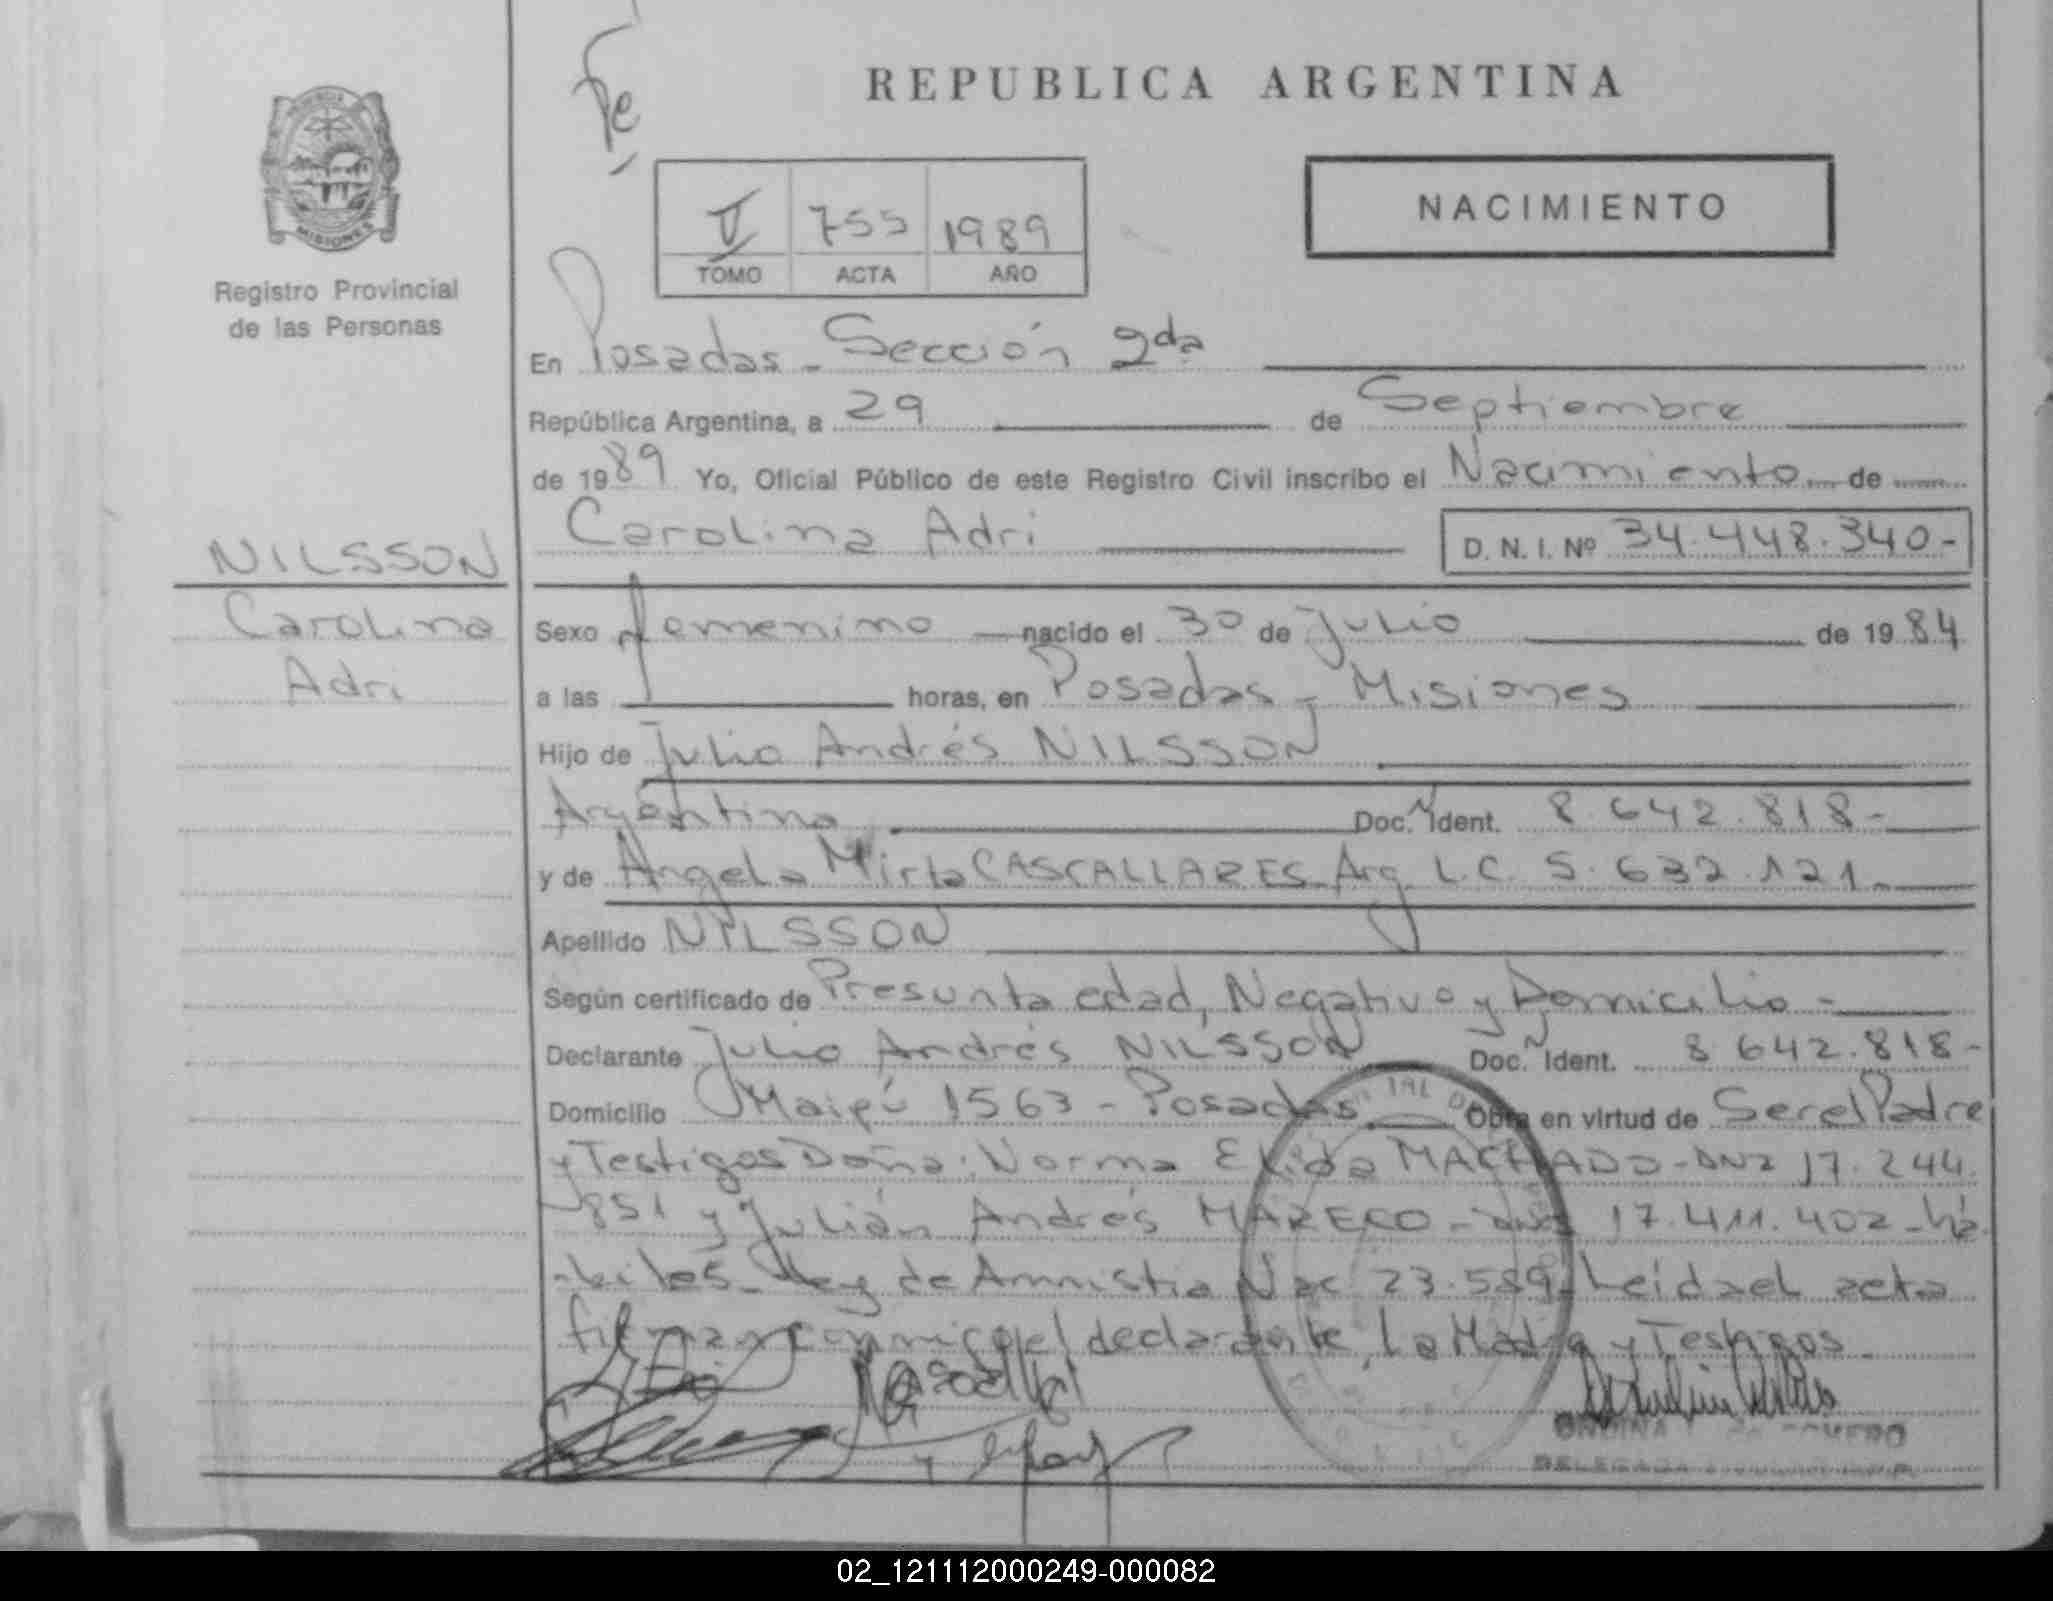 Fe
REPUBLICA ARGENTINA
NACIMIENTO
V 755 1989
TOMO ACTA AÑO
MISIONES
Registro Provincial
de las Personas
En Posadas - Sección 2da
República Argentina, a 29 de Septiembre
de 1989 Yo, Oficial Público de este Registro Civil inscribo el Nacimiento de
Carolina Adri D. N. I. Nº 34.448.340-
NILSSON
Carolina
Adri
Sexo femenino nacido el 30 de Julio de 1984
a las horas, en Posadas - Misiones
Hijo de Julio Andrés NILSSON
Argentino Doc. N Ident. 8.642.818-
y de Angela Mirta CASCALLARES Arg. L.C. 5.632.121-
Apellido NILSSON
Según certificado de Presunta edad, Negativo y Domicilio -
Declarante Julio Andrés NILSSON Doc. N Ident. 8.642.818-
Domicilio Maipú 1563 - Posadas Obra en virtud de Ser el Padre
y Testigos Doña: Norma Elida MACHADO - DNI 17.244.
851 y Julián Andrés MARECO - DNI 17.411.402 - há-
biles - Ley de Amnistia Nac. 23.589. Leida el acta
firman conmigo el declarante, la Madre y Testigos.
ONDINA ROMERO
DELEGADA
02_121112000249-000082